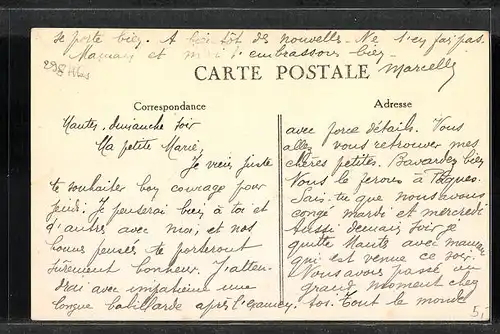 se porte bien. A bientôt des nouvelles. Ne t'en fais pas.
Maman et moi t'embrassons bien.
Marcelle
CARTE POSTALE
Correspondance
Nantes, dimanche soir
Ma petite Marie,
Je veux juste
te souhaiter bon courage pour
jeudi. Je penserai bien à toi et
d'autres avec moi, et nos
bonnes pensées te porteront
sûrement bonheur. J'atten-
drai avec impatience une
longue babillarde après l'examen,
Adresse
avec force détails. Vous
allez vous retrouver mes
chères petites. Bavardez bien
Nous le ferons à Pâques.
Sais-tu que nous avons
congé mardi et mercredi
Aussi demain soir je
quitte Nantes avec maman
qui est venue ce soir.
Nous avons passé un
grand moment chez
toi. Tout le monde
5,-